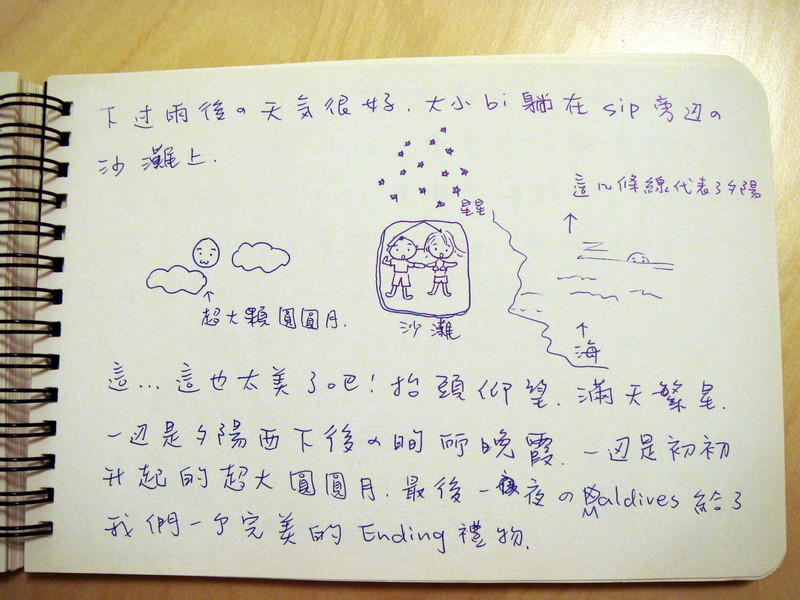 下过雨後の天気很好. 大小bi躺在sip旁辺の
沙灘上.
這几條線代表了夕陽
星星
超大顆圓圓月.
沙灘
海
這...這也太美了吧! 抬頭仰望. 滿天繁星.
一辺是夕陽西下後の晚霞. 一辺是初初
升起的超大圓圓月. 最後一夜の Maldives 給了
我們一个完美的 Ending 禮物.